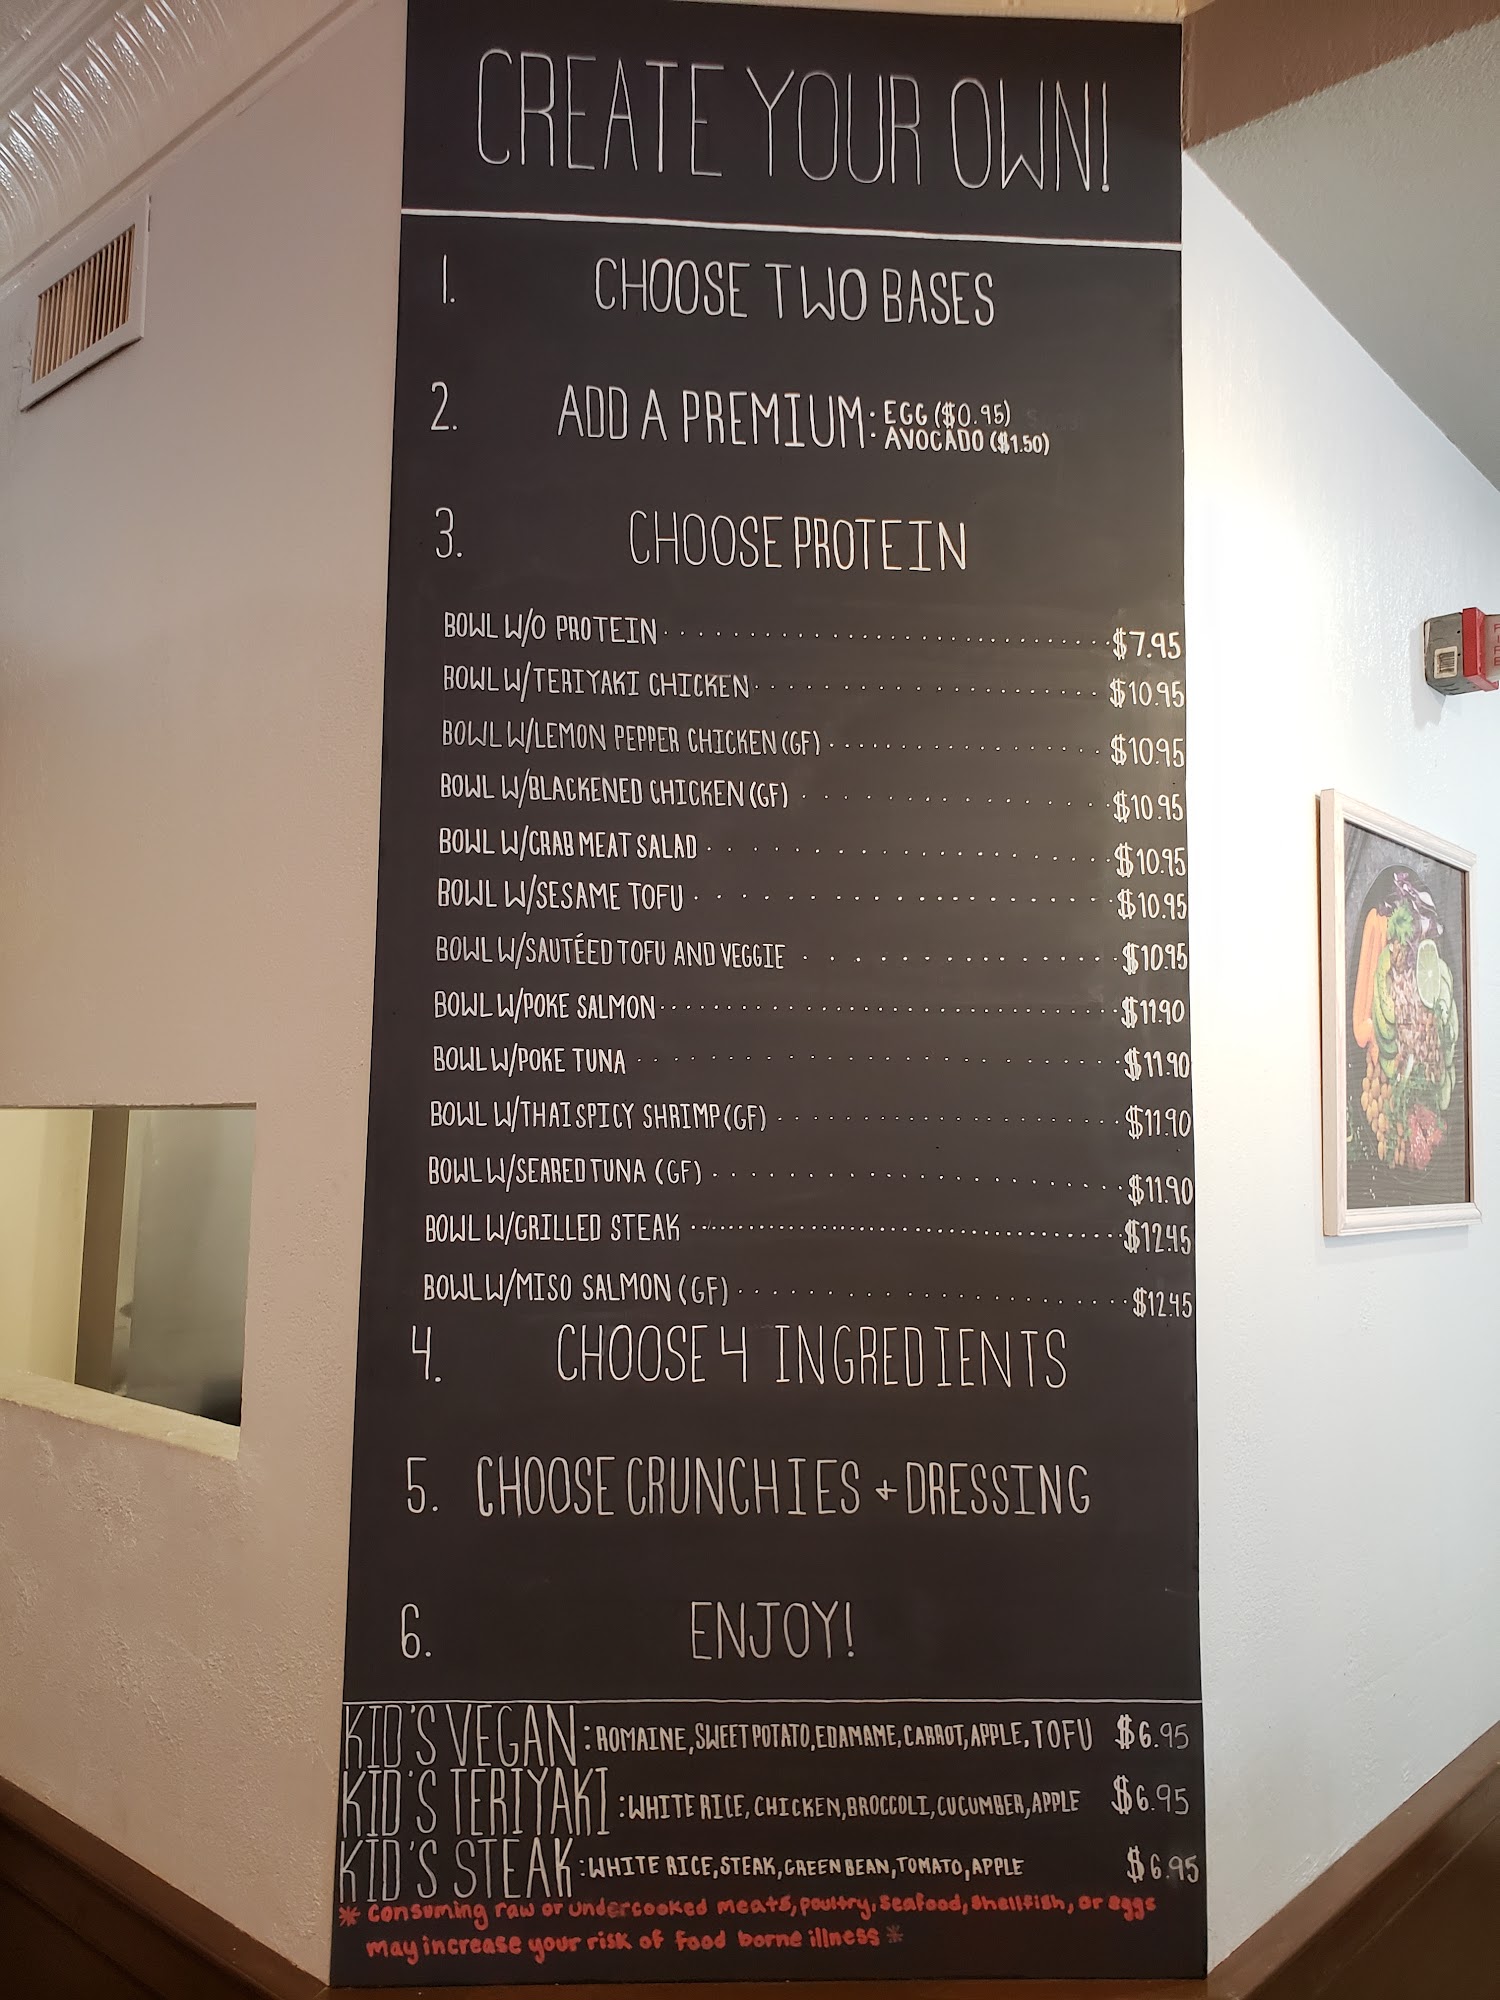 CREATE YOUR OWN!
1. CHOOSE TWO BASES
2. ADD A PREMIUM: EGG ($0.95)
AVOCADO ($1.50)
3. CHOOSE PROTEIN
BOWL W/O PROTEIN $7.95
BOWL W/TERIYAKI CHICKEN $10.95
BOWL W/LEMON PEPPER CHICKEN (GF) $10.95
BOWL W/BLACKENED CHICKEN (GF) $10.95
BOWL W/CRAB MEAT SALAD $10.95
BOWL W/SESAME TOFU $10.95
BOWL W/SAUTÉED TOFU AND VEGGIE $10.95
BOWL W/POKE SALMON $11.90
BOWL W/POKE TUNA $11.90
BOWL W/THAI SPICY SHRIMP (GF) $11.90
BOWL W/SEARED TUNA (GF) $11.90
BOWL W/GRILLED STEAK $12.45
BOWL W/MISO SALMON (GF) $12.45
4. CHOOSE 4 INGREDIENTS
5. CHOOSE CRUNCHIES + DRESSING
6. ENJOY!
KID'S VEGAN: ROMAINE, SWEET POTATO, EDAMAME, CARROT, APPLE, TOFU $6.95
KID'S TERIYAKI: WHITE RICE, CHICKEN, BROCCOLI, CUCUMBER, APPLE $6.95
KID'S STEAK: WHITE RICE, STEAK, GREEN BEAN, TOMATO, APPLE $6.95
* Consuming raw or undercooked meats, poultry, seafood, shellfish, or eggs
may increase your risk of food borne illness *